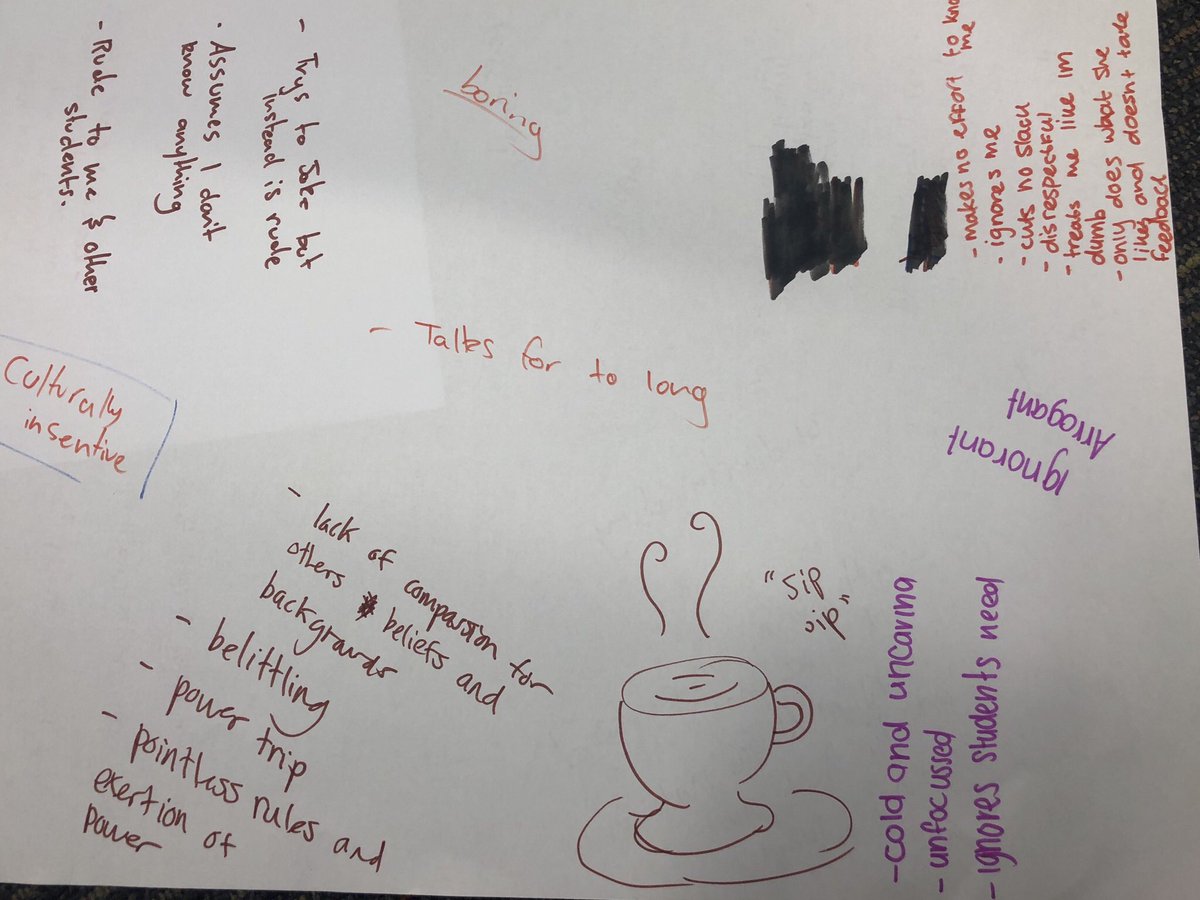 - makes no effort to know
me
- ignores me
- cuts no slack
- disrespectful
- treats me like im
dumb
- only does what she
likes and doesnt take
feedback
boring
- Trys to Joke but
instead is rude
- Assumes I don't
know anything
- Rude to me & other
students.
- Talks for to long
Culturally
insentive
Arrogant
Ignorant
- lack of compassion for
others beliefs and
backgrounds
- belittling
- power trip
- pointless rules and
exertion of
power
"sip
sip"
- cold and uncaring
- unfocussed
- ignores students need